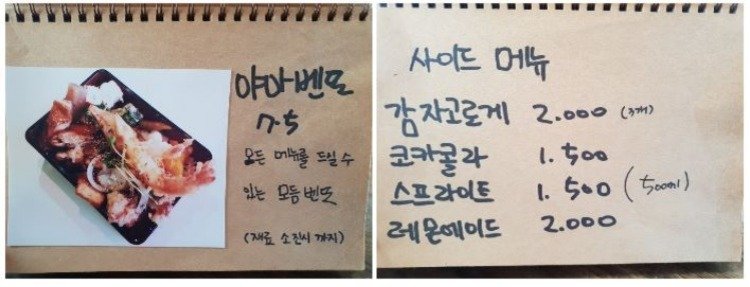 야마벤또
7.5
모든 메뉴를 드실 수
있는 모듬벤또
(재료 소진시 까지)
사이드 메뉴
감자고로케 2.000 (3개)
코카콜라 1.500
스프라이트 1.500 (500ml)
레몬에이드 2.000